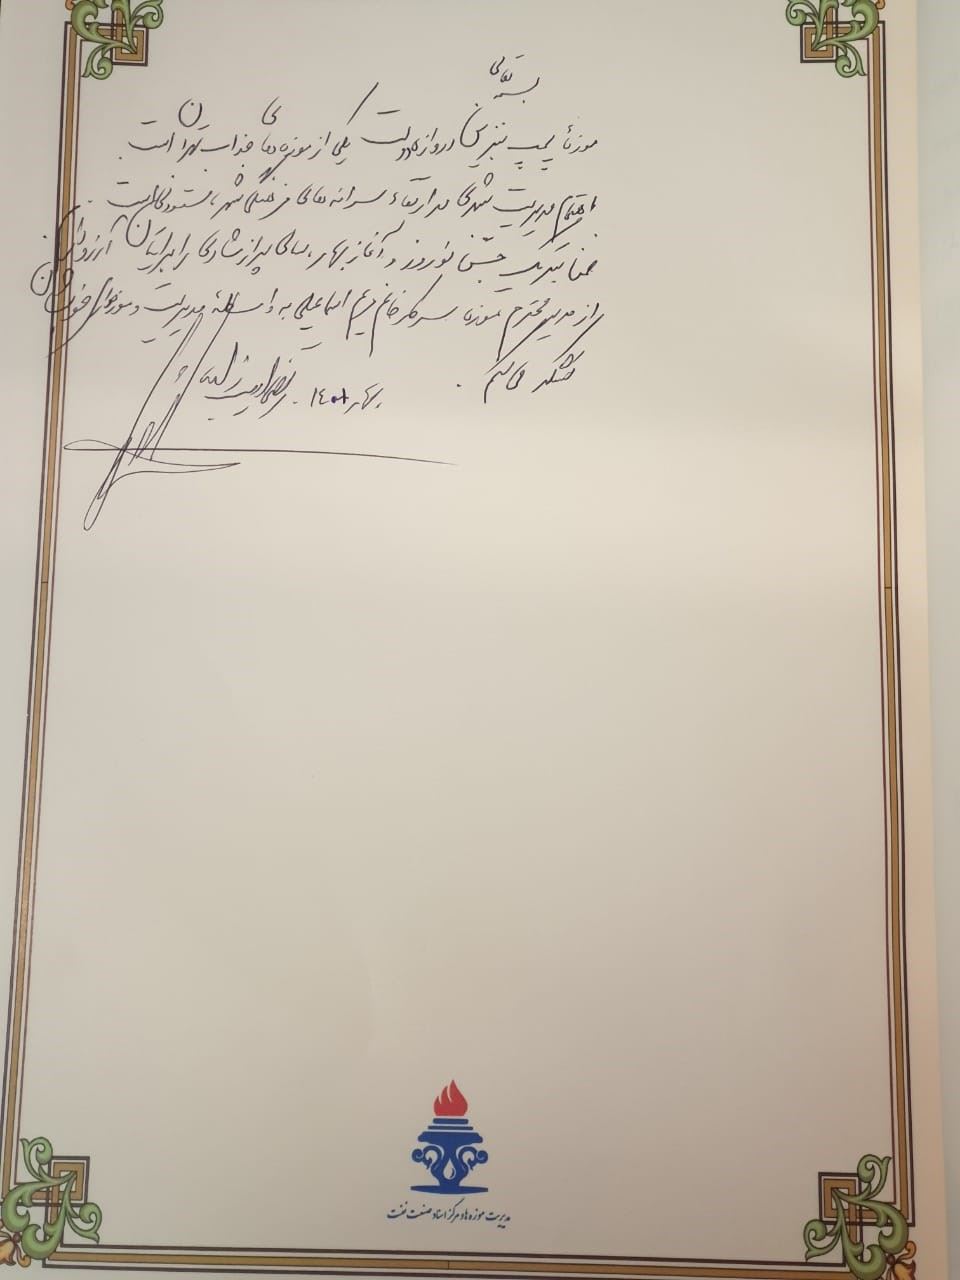 بسمه تعالی
موزهٔ پمپ بنزین دروازه دولت یکی از موزه های جذاب تهران است.
اهتمام مدیریت شهری در ارتقاء سرانه های فرهنگی شهر، ستودنی است.
ضمن تبریک جشن نوروز و آغاز بهار، سالی پر از شادی را برایتان آرزو دارم.
از مدیر محترم موزه سرکار خانم مریم اسماعیلی به واسطهٔ مدیریت و موزه خوبشان
تشکر می کنم.
بهار ۱۴۰۱.
مدیریت موزه ها و مرکز اسناد صنعت نفت